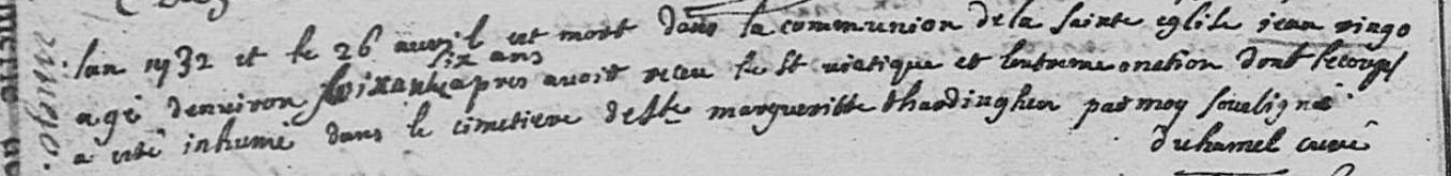 lan 1732 et le 26 auvril est mort dans la communion de la sainte eglise jean ringo
six ans
agé denuiron soixante apres auoir receu le St viatique et lextreme onction dont le corps
a esté inhumé dans le cimetiere de Ste margueritte dhardinghen par moy souligné
duhamel curé
ringo